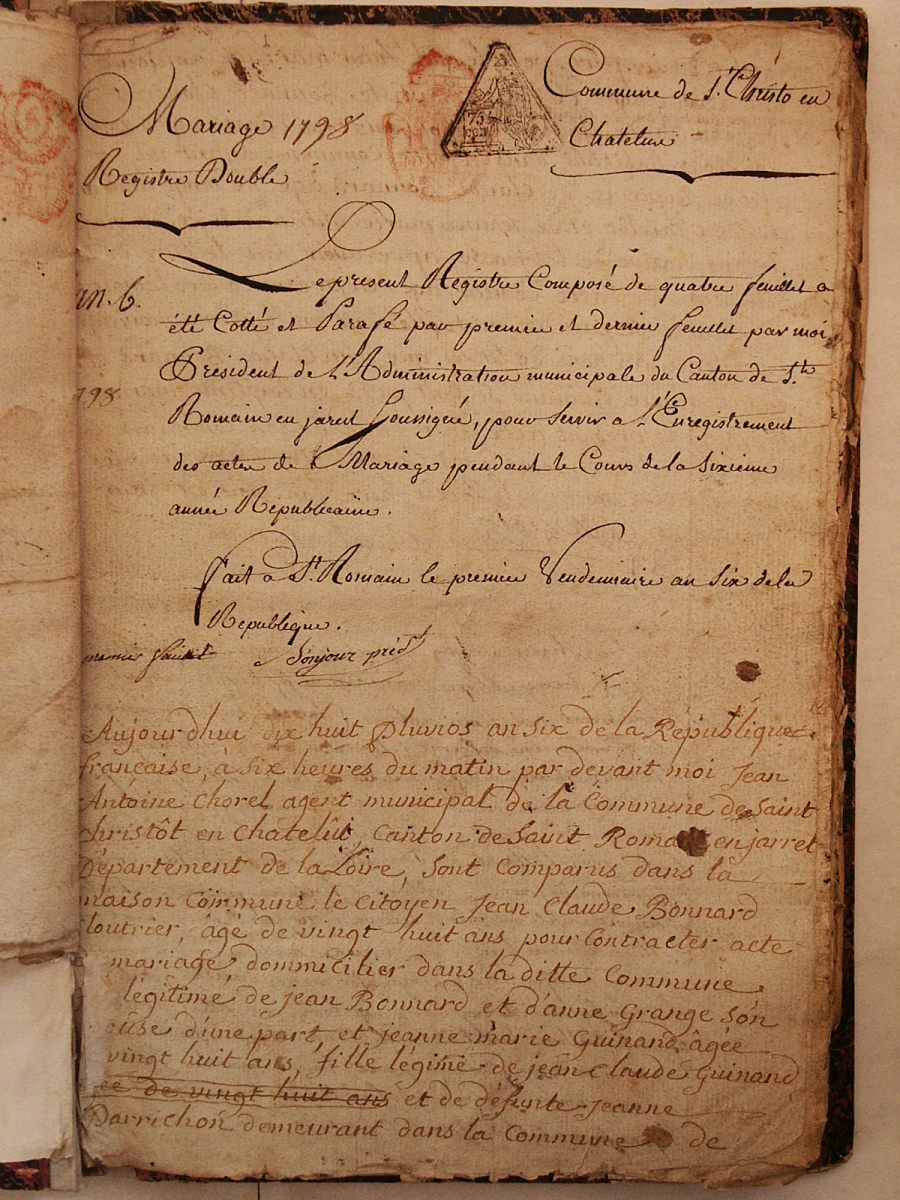 Mariage 1798
Registre Double
Commune de St. Christo en
Chatelux
75
cen
an. 6.
Le present Registre Composé de quatre feuillet a
été Cotté et Parafé par premier et dernier feuillet par moi
Président de L'Administration municipale du Canton de St.
Romain en jarret Soussigné, pour servir a L'Enregistrement
des actes de Mariage pendant le Cours de la Sixieme
année Republicaine.
798
fait a St. Romain le premier Vendemiaire an Six de la
Republique.
premier feuillet Bonjour prédt
Aujourdhui dix huit pluvios an six de la République
française, à six heures du matin par devant moi Jean
Antoine Chorel agent municipal de la Commune de Saint
christôt en Chatelût, Canton de Saint Roma en jarret
Département de la Loire, sont Comparus dans la
maison Commune le Citoyen Jean Claude Bonnard
loutrier, âgé de vingt huit ans pour Contracter acte
mariage, dommicilier dans la ditte Commune
légitime de jean Bonnard et d'anne Grange son
use d'une part, et jeanne marie Guinand âgée
vingt huit ans, fille légime de jean Claude Guinand
ée de vingt huit ans et de défunte Jeanne
Darrichon demeurant dans la Commune de